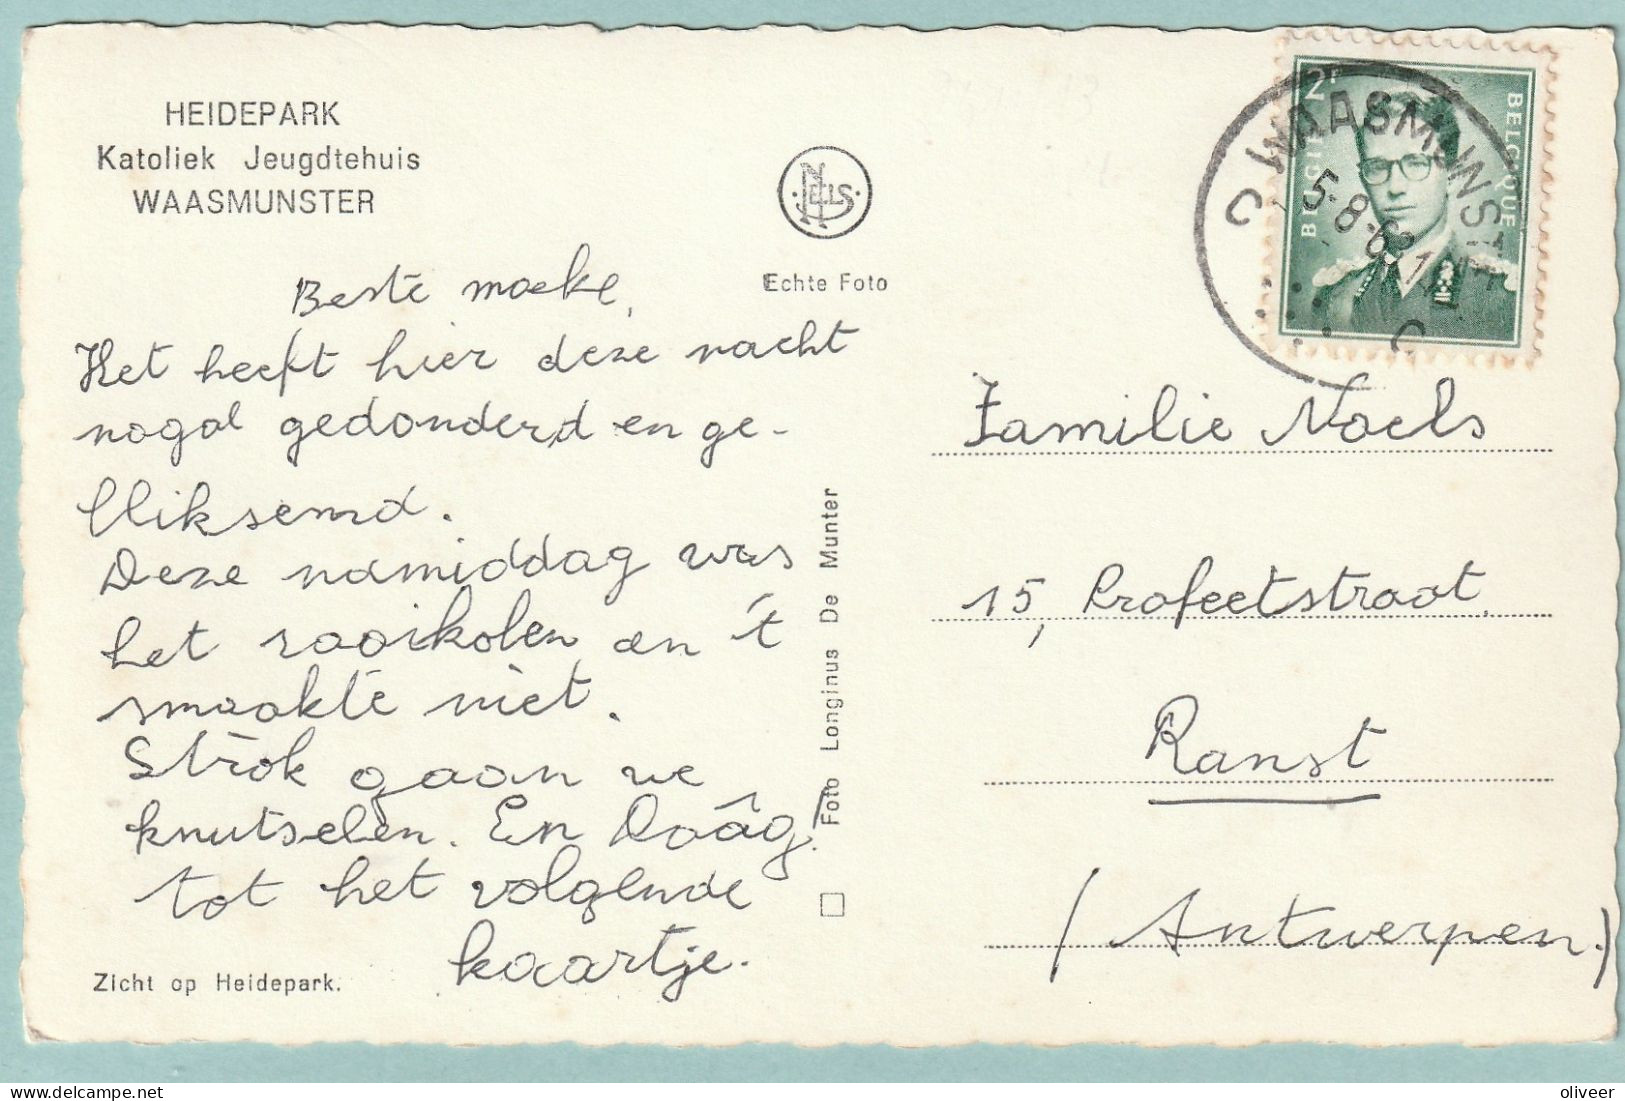 HEIDEPARK
Katoliek Jeugdtehuis
WAASMUNSTER
NELS
Echte Foto
Beste moeke,
Het heeft hier deze nacht
nogal gedonderd en ge-
bliksemd.
Deze namiddag was
het rooikolen en 't
smaakte niet.
Strak gaan we
knutselen. En Daâg!
tot het volgende
kaartje.
Zicht op Heidepark.
Foto Longinus De Munter
2F
BELGIE
BELGIQUE
C WAASMUNSTER C
5-8-63 14
Familie Noels
15, Profeetstraat.
Ranst
(Antwerpen.)
oliveer